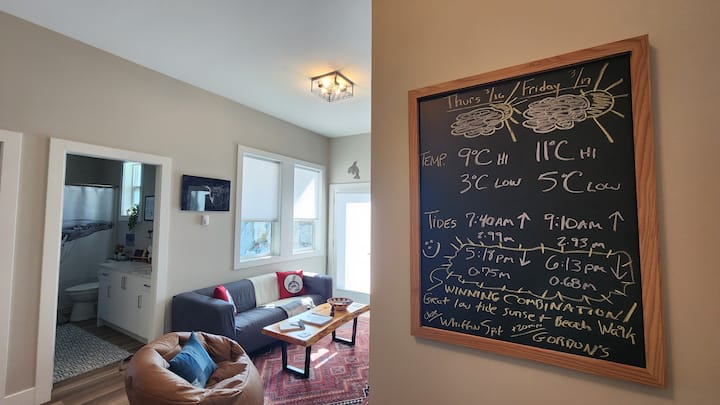 Thurs 3/16 Friday 3/17
TEMP. 9°C HI 11°C HI
3°C LOW 5°C LOW
TIDES 7:40AM↑ 9:10AM↑
2.99m 2.93m
5:18pm↓ 6:13pm↓
0.75m 0.68m
WINNING COMBINATION!
Great low tide sunset + Beach Walk
Whiffin Spit
GORDON'S